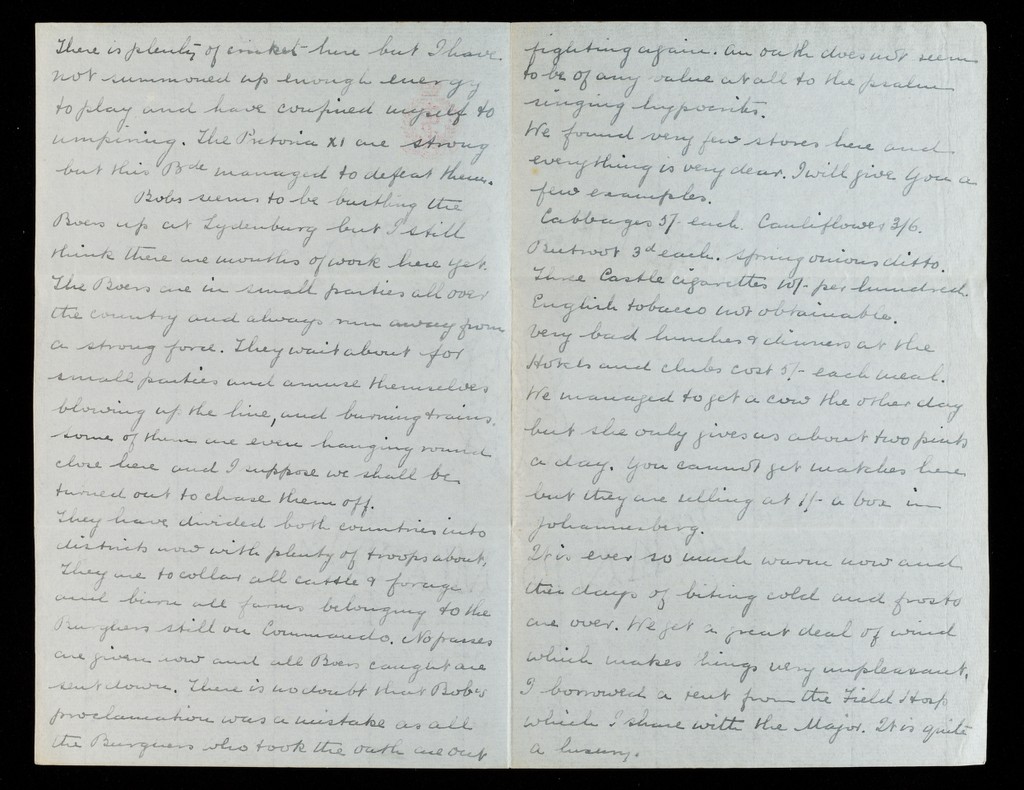 There is plenty of cricket here but I have
not summoned up enough energy
to play and have confined myself to
umpiring. The Pretoria XI are strong
but this Bde managed to defeat them.
Bobs seems to be bustling the
Boers up at Lydenburg but I still
think there are months of work here yet.
The Boers are in small parties all over
the country and always run away from
a strong force. They wait about for
small parties and amuse themselves
blowing up the line, and burning trains.
some of them are even hanging round
close here and I suppose we shall be
turned out to chase them off.
They have divided both countries into
districts now with plenty of troops about.
They are to collar all cattle & forage
and burn all farms belonging to the
Burghers still on Commando. No passes
are given now and all Boers caught are
sent down. There is no doubt that Bobs'
proclamation was a mistake as all
the Burghers who took the oath are out
fighting again. An oath does not seem
to be of any value at all to the psalm
singing hypocrites.
We found very few stores here and
everything is very dear. I will give you a
few examples.
Cabbages 5/- each. Cauliflower 3/6.
Beetroot 3d each. Spring onions ditto.
Three Castle cigarettes 10/- per hundred.
English tobacco not obtainable.
Very bad lunches & dinners at the
Hotels and clubs cost 5/- each meal.
We managed to get a cow the other day
but she only gives us about two pints
a day. You cannot get matches here
but they are selling at 1/- a box in
Johannesberg.
It is ever so much warm now and
the days of biting cold and frosts
are over. We get a great deal of wind
which makes things very unpleasant.
I borrowed a tent from the Field Hosp
which I share with the Major. It is quite
a luxury.